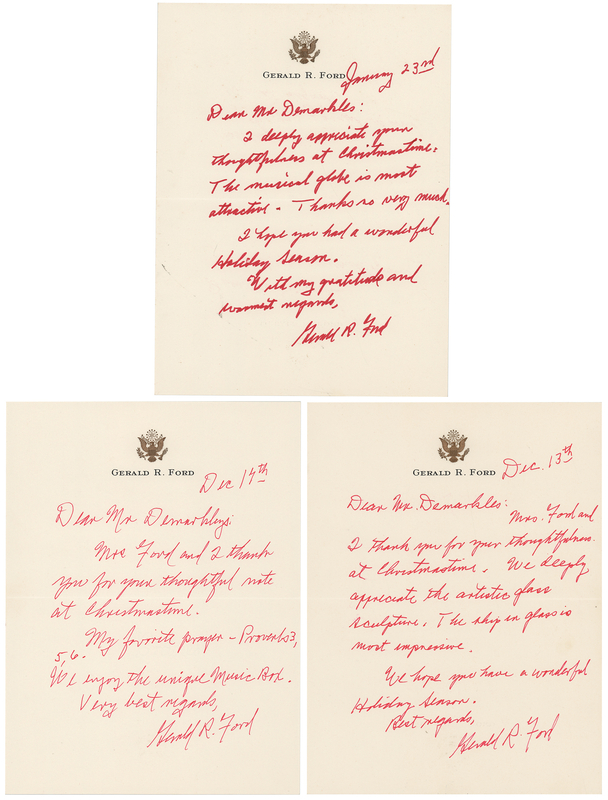 GERALD R. FORD
January 23rd
Dear Mr Demarkles:
I deeply appreciate your
thoughtfulness at Christmastime.
The musical globe is most
attractive. Thanks so very much.
I hope you had a wonderful
Holiday Season.
With my gratitude and
warmest regards,
Gerald R. Ford
GERALD R. FORD
Dec 14th
Dear Mr Demarkleys:
Mrs Ford and I thank
you for your thoughtful note
at Christmastime.
My favorite prayer - Proverbs 3,
5,6.
We enjoy the unique Music Box.
Very best regards,
Gerald R. Ford
GERALD R. FORD
Dec. 13th
Dear Mr. Demarkles:
Mrs. Ford and
I thank you for your thoughtfulness
at Christmastime. We deeply
appreciate the artistic glass
sculpture. The ship in glass is
most impressive.
We hope you have a wonderful
Holiday Season.
Best regards,
Gerald R. Ford